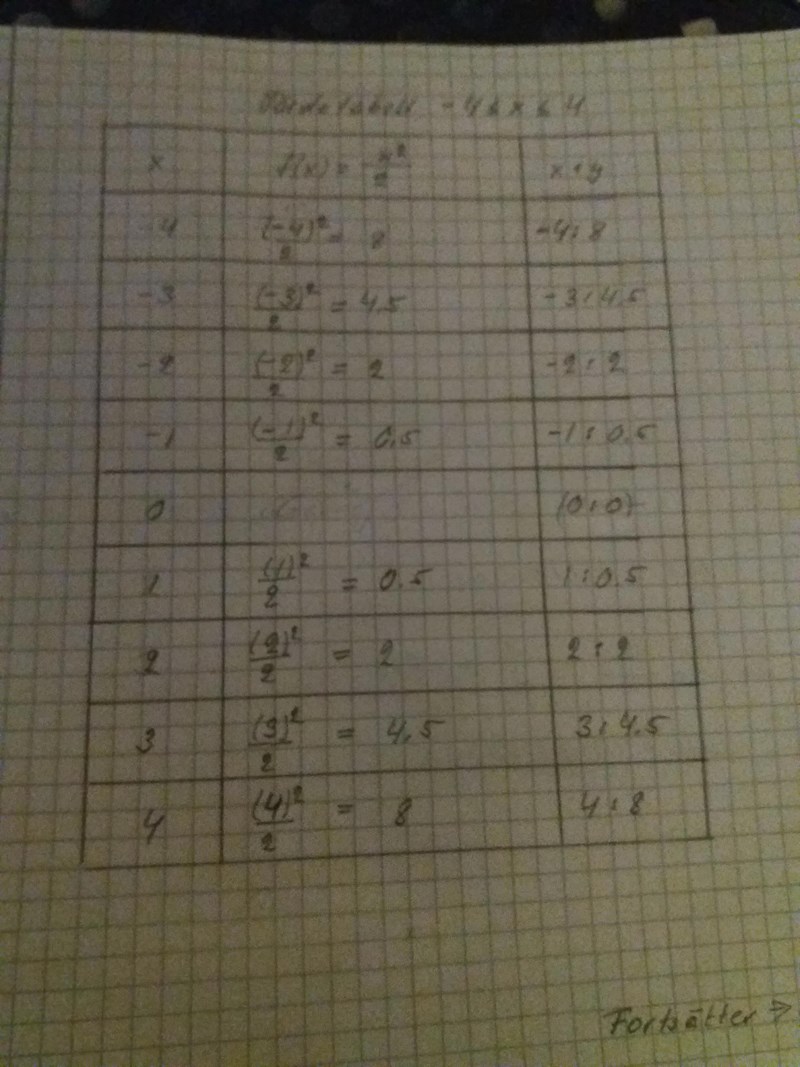 Värdetabell -4 ≤ x ≤ 4
x f(x) = x²/2 x ; y
-4 (-4)²/2 = 8 -4 ; 8
-3 (-3)²/2 = 4.5 -3 ; 4.5
-2 (-2)²/2 = 2 -2 ; 2
-1 (-1)²/2 = 0.5 -1 ; 0.5
0 (0 ; 0)
1 (1)²/2 = 0.5 1 ; 0.5
2 (2)²/2 = 2 2 ; 2
3 (3)²/2 = 4.5 3 ; 4.5
4 (4)²/2 = 8 4 ; 8
Fortsätter →